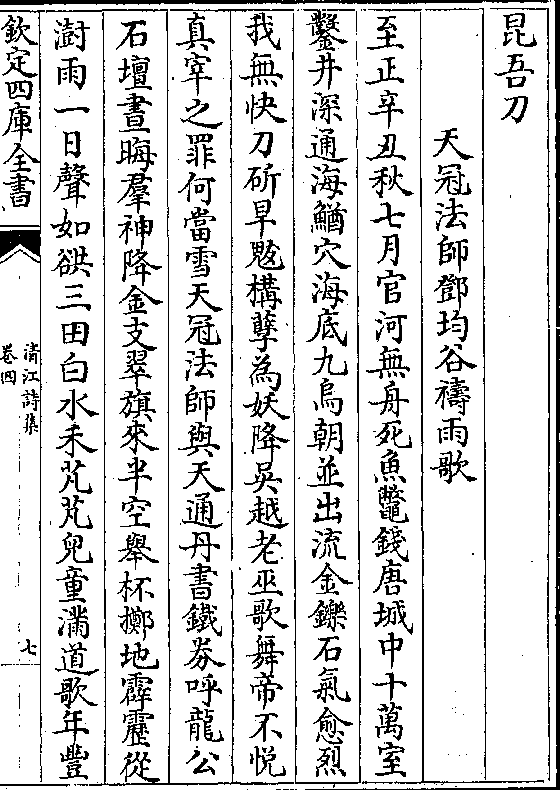 昆吾刀
天冠法師鄧均谷禱雨歌
至正辛丑秋七月官河無舟死魚鼈錢唐城中十萬室
鑿井深通海鰌穴海底九烏朝並出流金鑠石氣愈烈
我無快刀斫旱魃構孽為妖降吳越老巫歌舞帝不悦
真宰之罪何當雪天冠法師與天通丹書鐵券呼龍公
石壇晝晦羣神降金支翠旗來半空舉杯擲地霹靂從
澍雨一日聲如谼三田白水禾芃芃兒童滿道歌年豐
欽定四庫全書
清江詩集
卷四
七